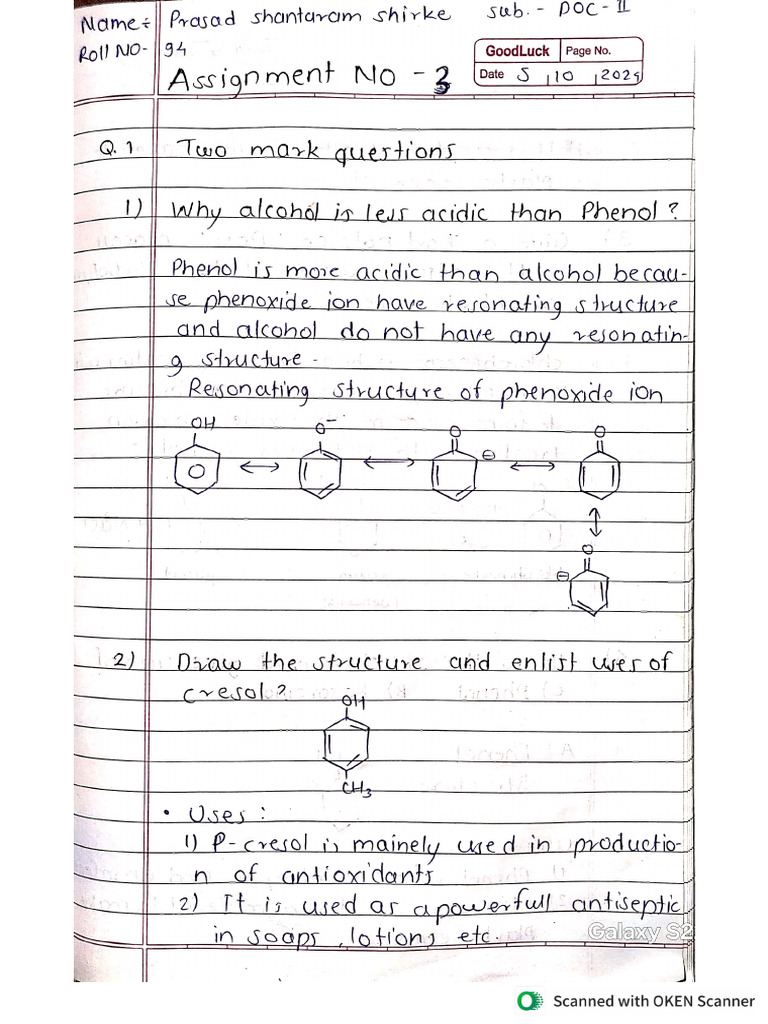 Name:- Prasad shantaram shirke sub.- POC-II
Roll NO- 94
GoodLuck Page No.
Date 5 10 2024
Assignment NO - 3
Q.1 Two mark questions
1) Why alcohol is less acidic than Phenol?
Phenol is more acidic than alcohol becau-
se phenoxide ion have resonating structure
and alcohol do not have any resonatin-
g structure.
Resonating structure of phenoxide ion
OH O⁻ O O
⊖
O
⊖
2) Draw the structure and enlist uses of
cresol?
OH
CH3
• Uses:
1) P-cresol is mainely used in productio-
n of antioxidants
2) It is used as a powerfull antiseptic
in soaps, lotions etc.
Galaxy S2
Scanned with OKEN Scanner